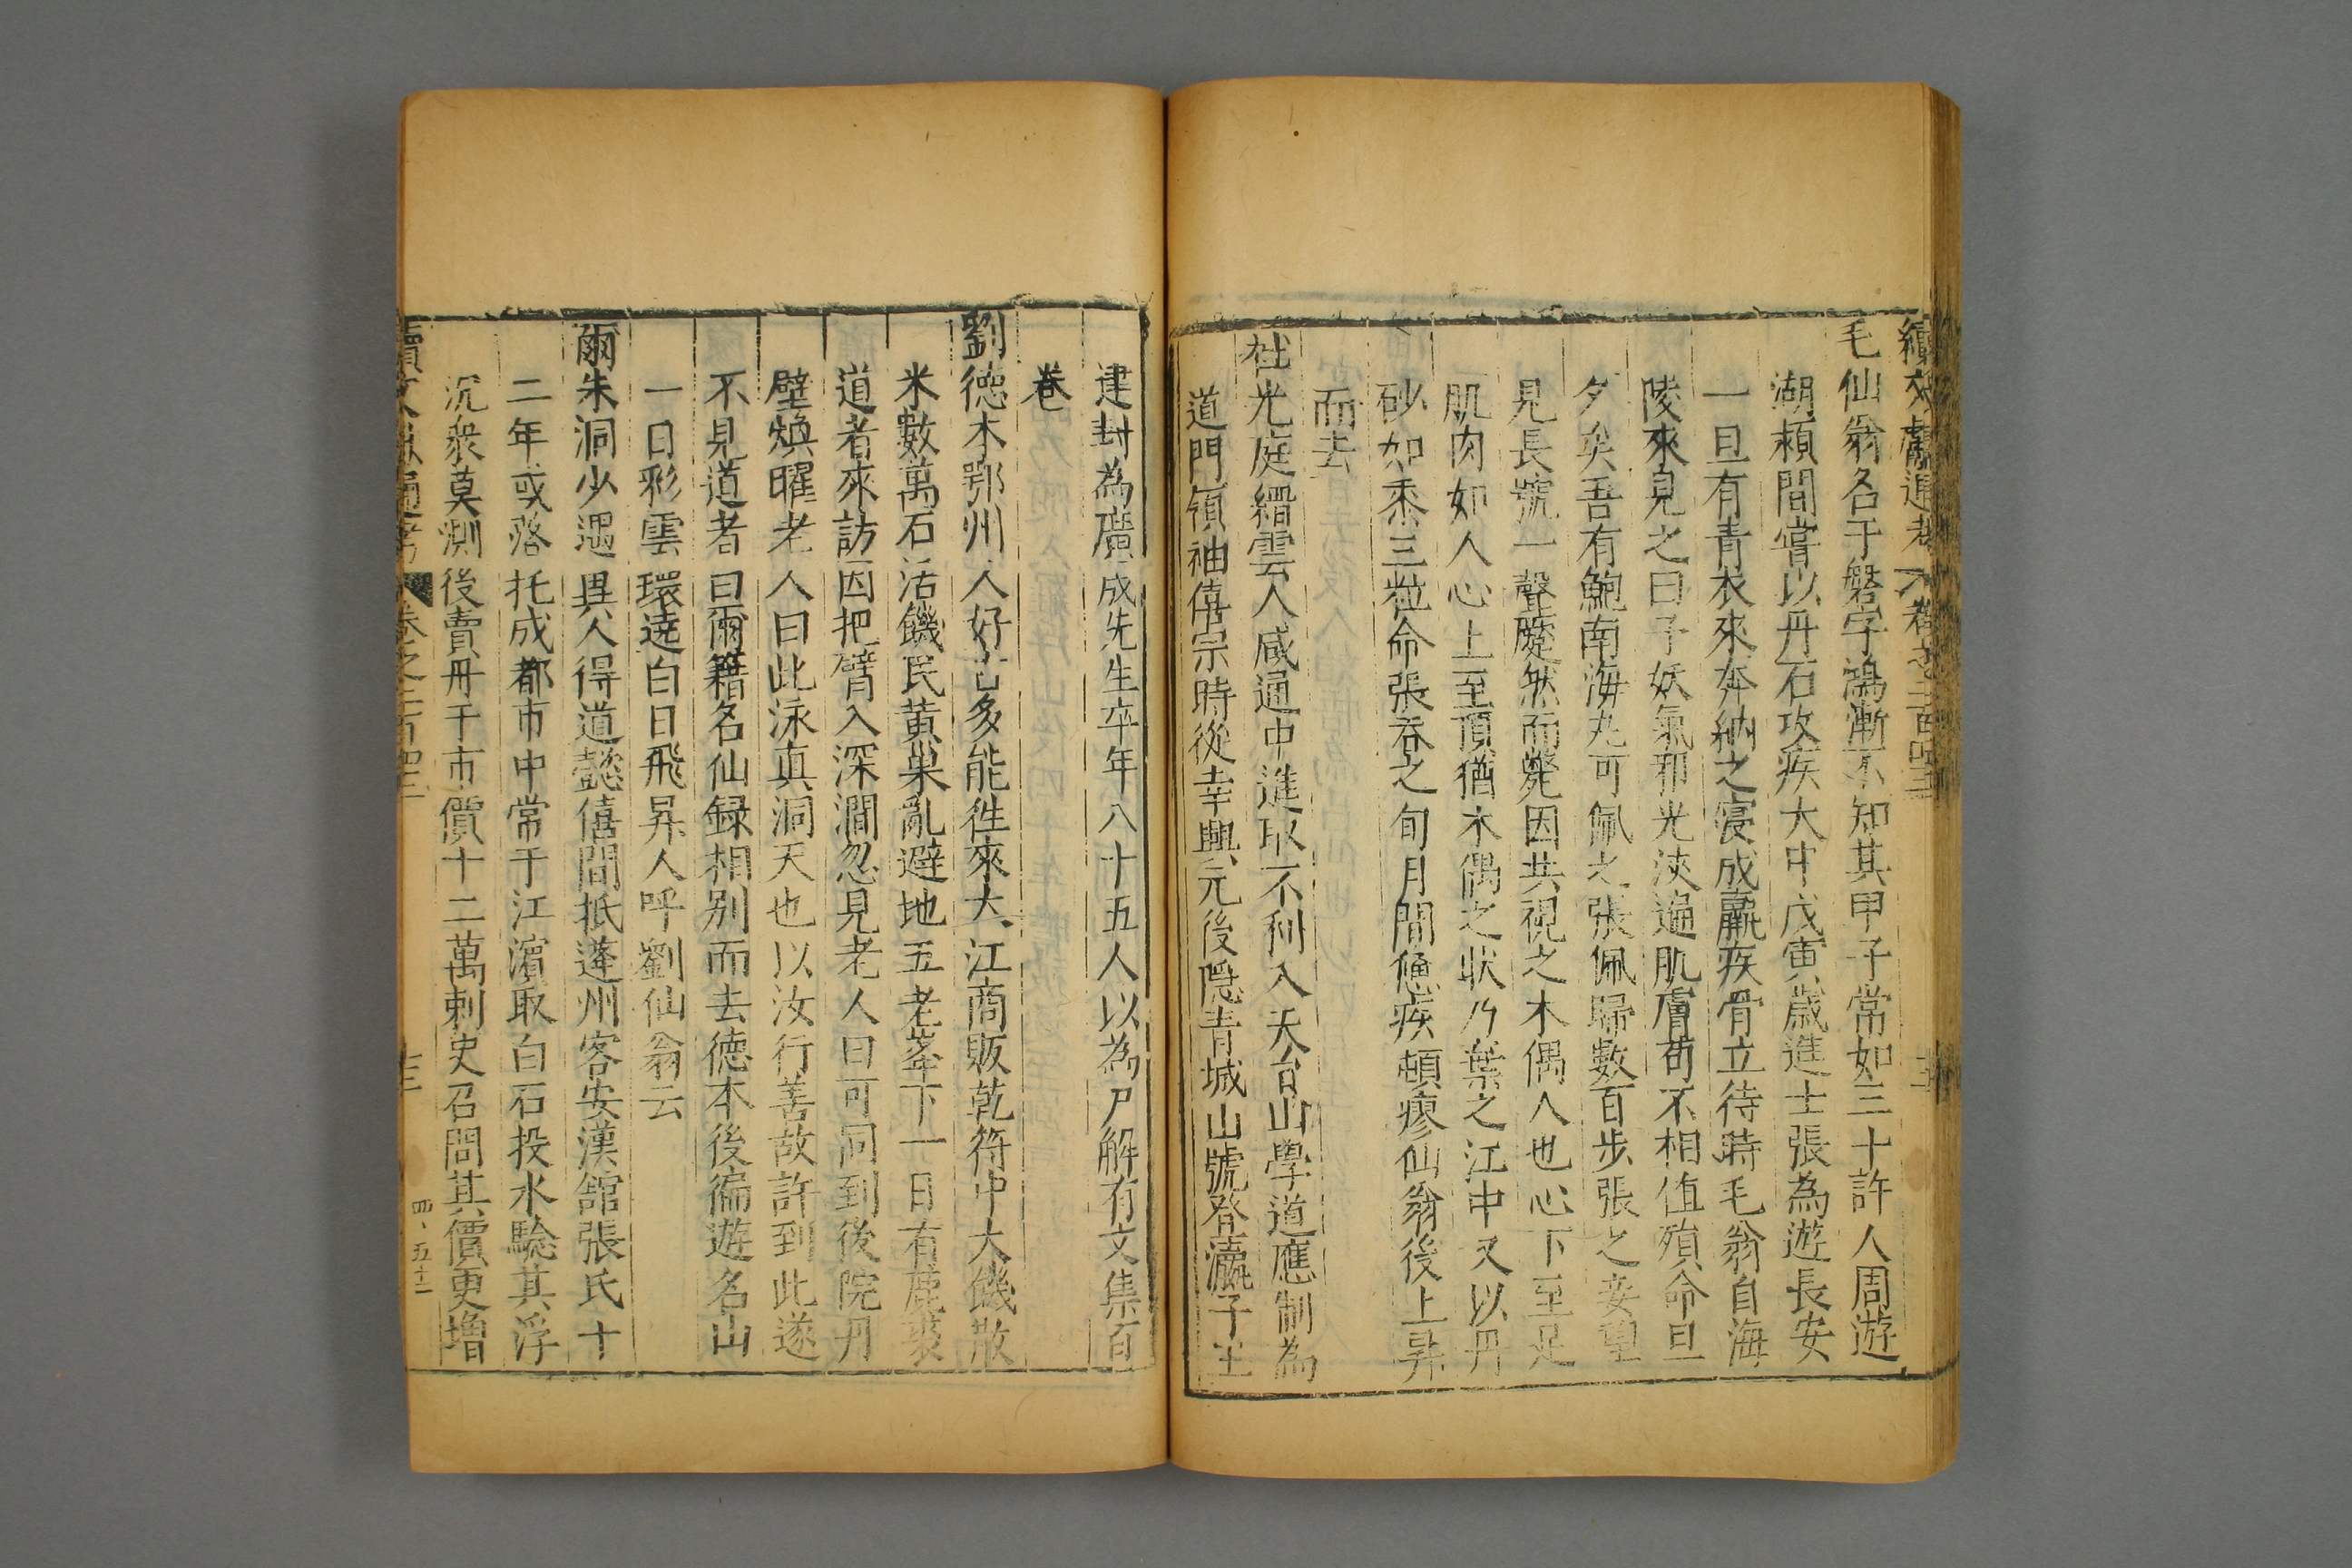 續文獻通考 卷之二百四三
毛仙翁名于磐字鴻漸不知其甲子常如三十許人周遊
湖頴間嘗以丹石攻疾大中戊寅歲進士張為遊長安
一旦有青衣來奔納之寖成羸疾骨立待時毛翁自海
陵來見之曰子妖氣邪光浹遍肌膚苟不相值殞命旦
夕矣吾有鮑南海丸可佩之張佩歸數百步張之妾望
見長號一聲蹷然而斃因共視之木偶人也心下至足
肌肉如人心上至頂猶木偶之狀乃葉之江中又以丹
砂如黍三粒命張吞之旬月間憊疾頓瘳仙翁後上昇
而去
杜光庭縉雲人咸通中進取不利入天台山學道應制為
道門領袖僖宗時從幸興元後隱青城山號登瀛子王
建封為廣成先生卒年八十五人以為尸解有文集百
卷
劉德本鄂州人好多能徃來大江商販乾符中大饑散
米數萬石活饑民黄巢亂避地五老峯下一日有鹿裘
道者來訪因把臂入深澗忽見老人曰可同到後院丹
壁煥曜老人曰此泳真洞天也以汝行善故許到此遂
不見道者曰爾籍名仙録相别而去德本後徧遊名山
一日彩雲環遶白日飛昇人呼劉仙翁云
爾朱洞少遇異人得道懿僖間抵蓬州客安漢舘張氏十
二年或落托成都市中常于江濱取白石投水騐其浮
沉衆莫測後賣丹于市價十二萬剌史召問其價更增
續文獻通考 卷之二百四三 四、五十二